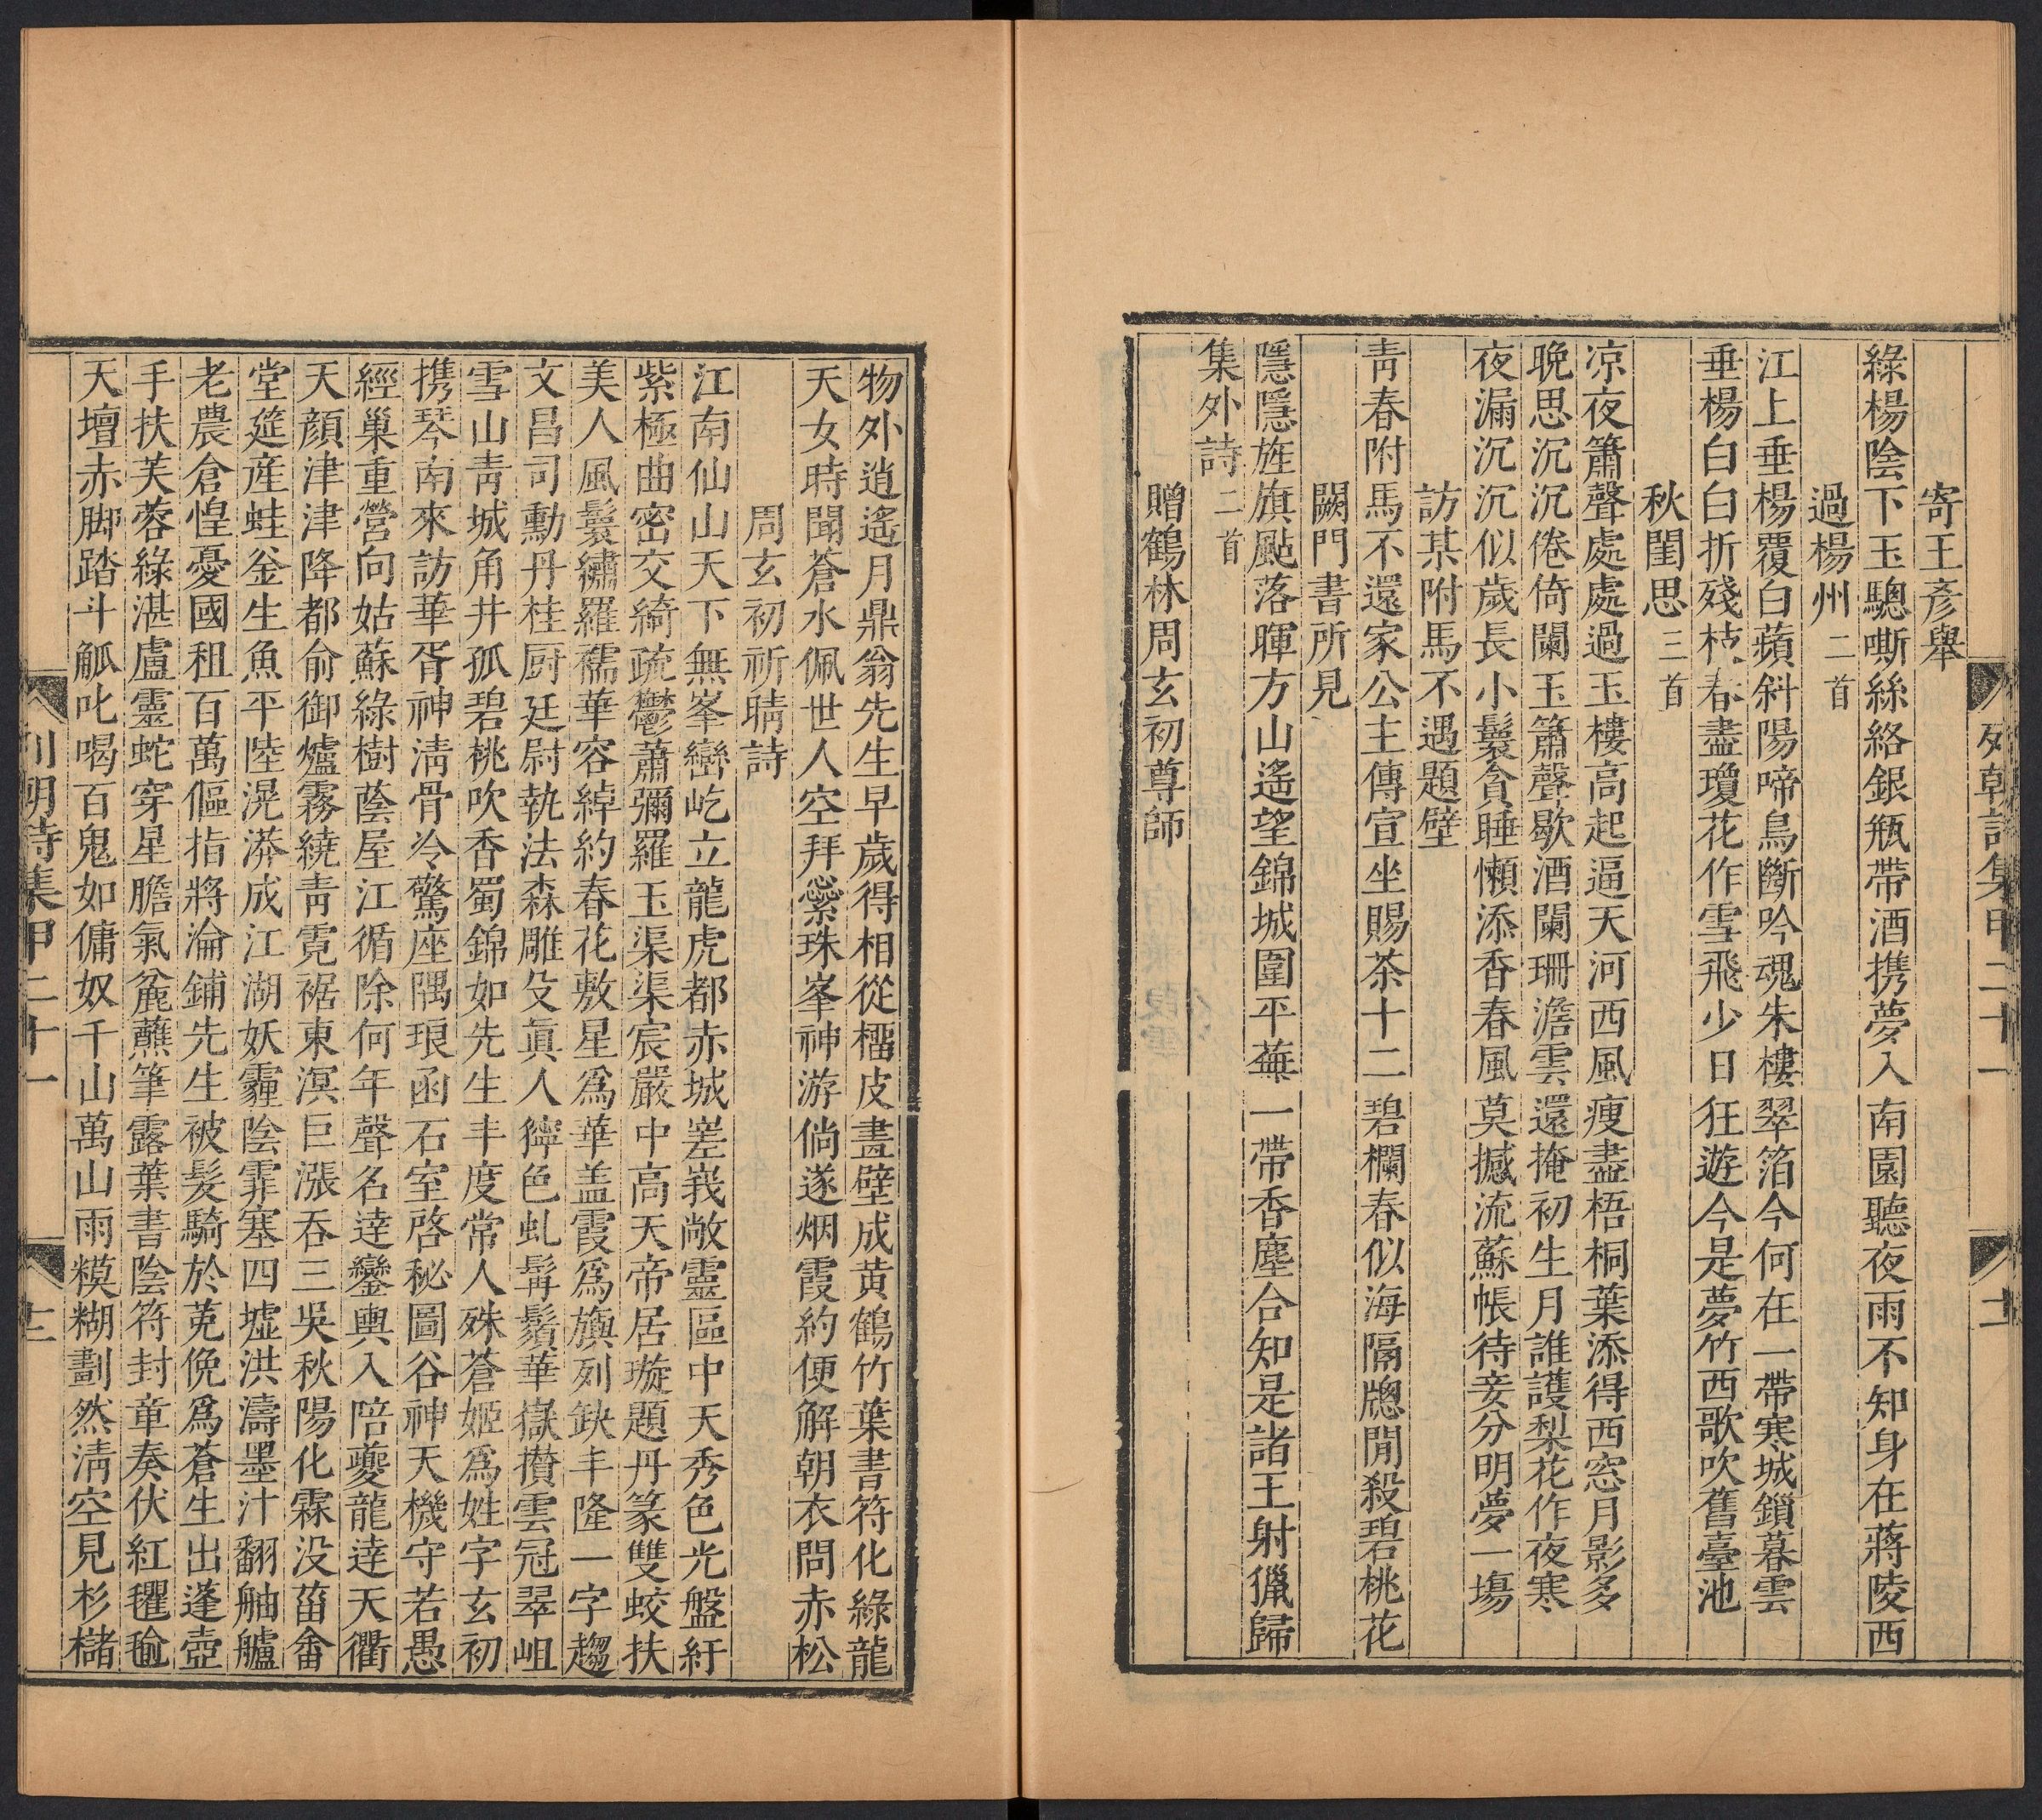 列朝詩集甲二十一 十二
寄王彥舉
綠楊陰下玉驄嘶絲絡銀瓶帶酒携夢入南園聽夜雨不知身在蔣陵西
過楊州二首
江上垂楊覆白蘋斜陽啼鳥斷吟魂朱樓翠箔今何在一帶寒城鎖暮雲
垂楊白白折殘枝春盡瓊花作雪飛少日狂遊今是夢竹西歌吹舊臺池
秋閨思三首
凉夜簫聲處處過玉樓高起逼天河西風瘦盡梧桐葉添得西窓月影多
晚思沉沉倦倚闌玉簫聲歇酒闌珊澹雲還掩初生月誰護梨花作夜寒
夜漏沉沉似歲長小鬟貪睡懶添香春風莫撼流蘇帳待妾分明夢一塲
訪某附馬不遇題壁
靑春附馬不還家公主傳宣坐賜茶十二碧欄春似海隔牕閒殺碧桃花
闕門書所見
隱隱旌旗颭落暉方山遙望錦城圍平蕪一帶香塵合知是諸王射獵歸
集外詩二首
贈鶴林周玄初尊師
物外逍遙月鼎翁先生早歲得相從橊皮畫壁成黃鶴竹葉書符化綠龍
天女時聞蒼水佩世人空拜蘂珠峯神游倘遂烟霞約便解朝衣問赤松
周玄初祈晴詩
江南仙山天下無峯巒屹立龍虎都赤城嵳峩敞靈區中天秀色光盤紆
紫極曲密交綺疏鬱蕭彌羅玉渠渠宸嚴中高天帝居璇題丹篆雙蛟扶
美人風鬟繡羅襦華容綽約春花敷星爲華盖霞爲旟列缺丰隆一字趨
文昌司勳丹桂厨廷尉執法森雕殳眞人𢄙色虬髯鬚華嶽攢雲冠翠岨
雪山靑城角井孤碧桃吹香蜀錦如先生丰度常人殊蒼姬爲姓字玄初
携琴南來訪華胥神淸骨冷驚座隅琅函石室啓秘圖谷神天機守若愚
經巢重營向姑蘇綠樹蔭屋江循除何年聲名達鑾輿入陪夔龍達天衢
天顏津津降都俞御爐霧繞靑霓裾東溟巨漲吞三吳秋陽化霖没菑畬
堂筵産蛙釡生魚平陸滉漭成江湖妖霾陰霏塞四墟洪濤墨汁翻舳艫
老農倉惶憂國租百萬傴指將淪鋪先生被髮騎於菟俛爲蒼生出蓬壺
手扶芙蓉綠湛盧靈蛇穿星膽氣麄蘸筆露葉書陰符封章奏伏紅氍毹
天壇赤脚踏斗觚叱喝百鬼如傭奴千山萬山雨糢糊劃然淸空見杉櫧
列朝詩集甲二十一 十二